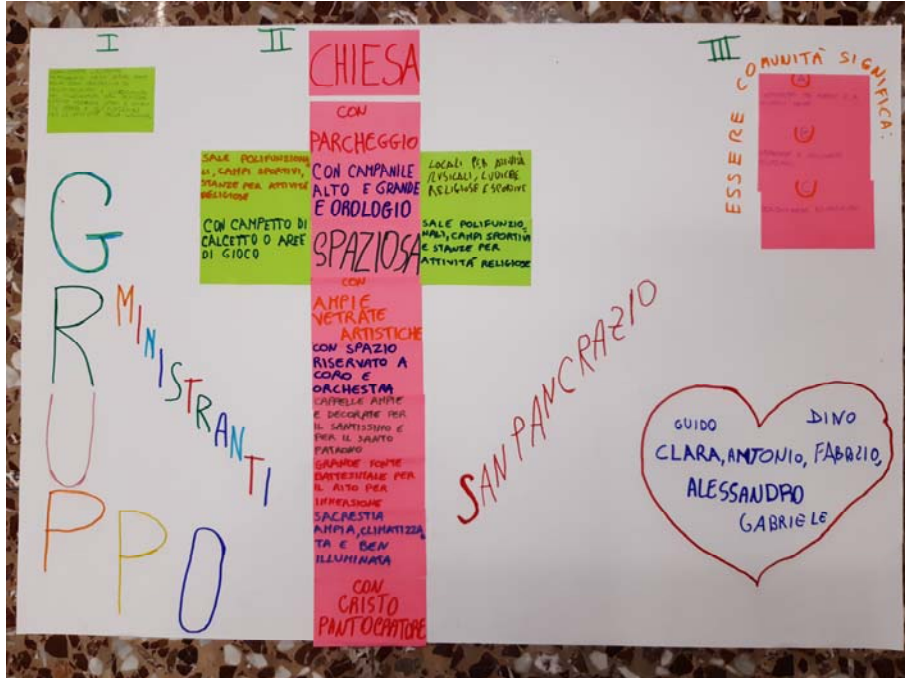 I
II
III
CHIESA
CON
PARCHEGGIO
CON CAMPANILE
ALTO E GRANDE
E OROLOGIO
SPAZIOSA
CON
AMPIE
VETRATE
ARTISTICHE
CON SPAZIO
RISERVATO A
CORO E
ORCHESTRA
CAPPELLE AMPIE
E DECORATE PER
IL SANTISSIMO E
PER IL SANTO
PATRONO
GRANDE FONTE
BATTESIMALE PER
IL RITO PER
IMMERSIONE
SACRESTIA
AMPIA, CLIMATIZZA
TA E BEN
ILLUMINATA
CON
CRISTO
PANTOCRATORE
SALE POLIFUNZIONA
LI, CAMPI SPORTIVI,
STANZE PER ATTIVITÀ
RELIGIOSE
CON CAMPETTO DI
CALCETTO O AREE
DI GIOCO
LOCALI PER ATTIVITÀ
MUSICALI, LUDICHE
RELIGIOSE E SPORTIVE
SALE POLIFUNZIO
NALI, CAMPI SPORTIVI
E STANZE PER
ATTIVITÀ RELIGIOSE
ESSERE COMUNITÀ SIGNIFICA:
A
B
C
GRUPPO
MINISTRANTI
SAN PANCRAZIO
GUIDO DINO
CLARA, ANTONIO, FABRIZIO,
ALESSANDRO
GABRIELE